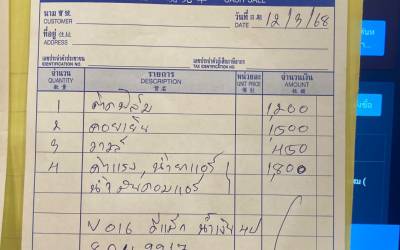 CASH SALE
นาม 寶號
CUSTOMER
วันที่ 日期 12/3/68
DATE
ที่อยู่ 住址
ADDRESS
เลขประจำตัวประชาชน
IDENTIFICATION NO.
เลขประจำตัวผู้เสียภาษีอากร
TAX IDENTIFICATION NO.
จำนวน รายการ หน่วยละ จำนวนเงิน
QUANTITY DESCRIPTION UNIT PRICE AMOUNT
1 1200
2 คอยเย็น 1500
3 วาวล์ 450
4 ค่าแรง, น้ำยาแอร์ 1800
น้ำมันคอมแอร์
ดีแม็ก น้ำเงิน 4ป